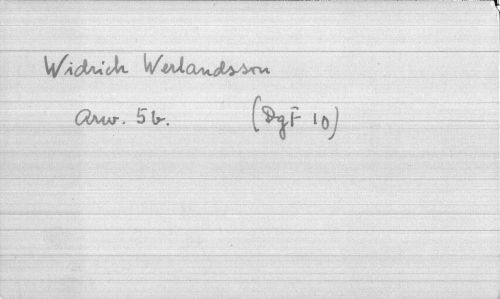 Widrich Werlandsson
Arw. 5b. (DgF 10)